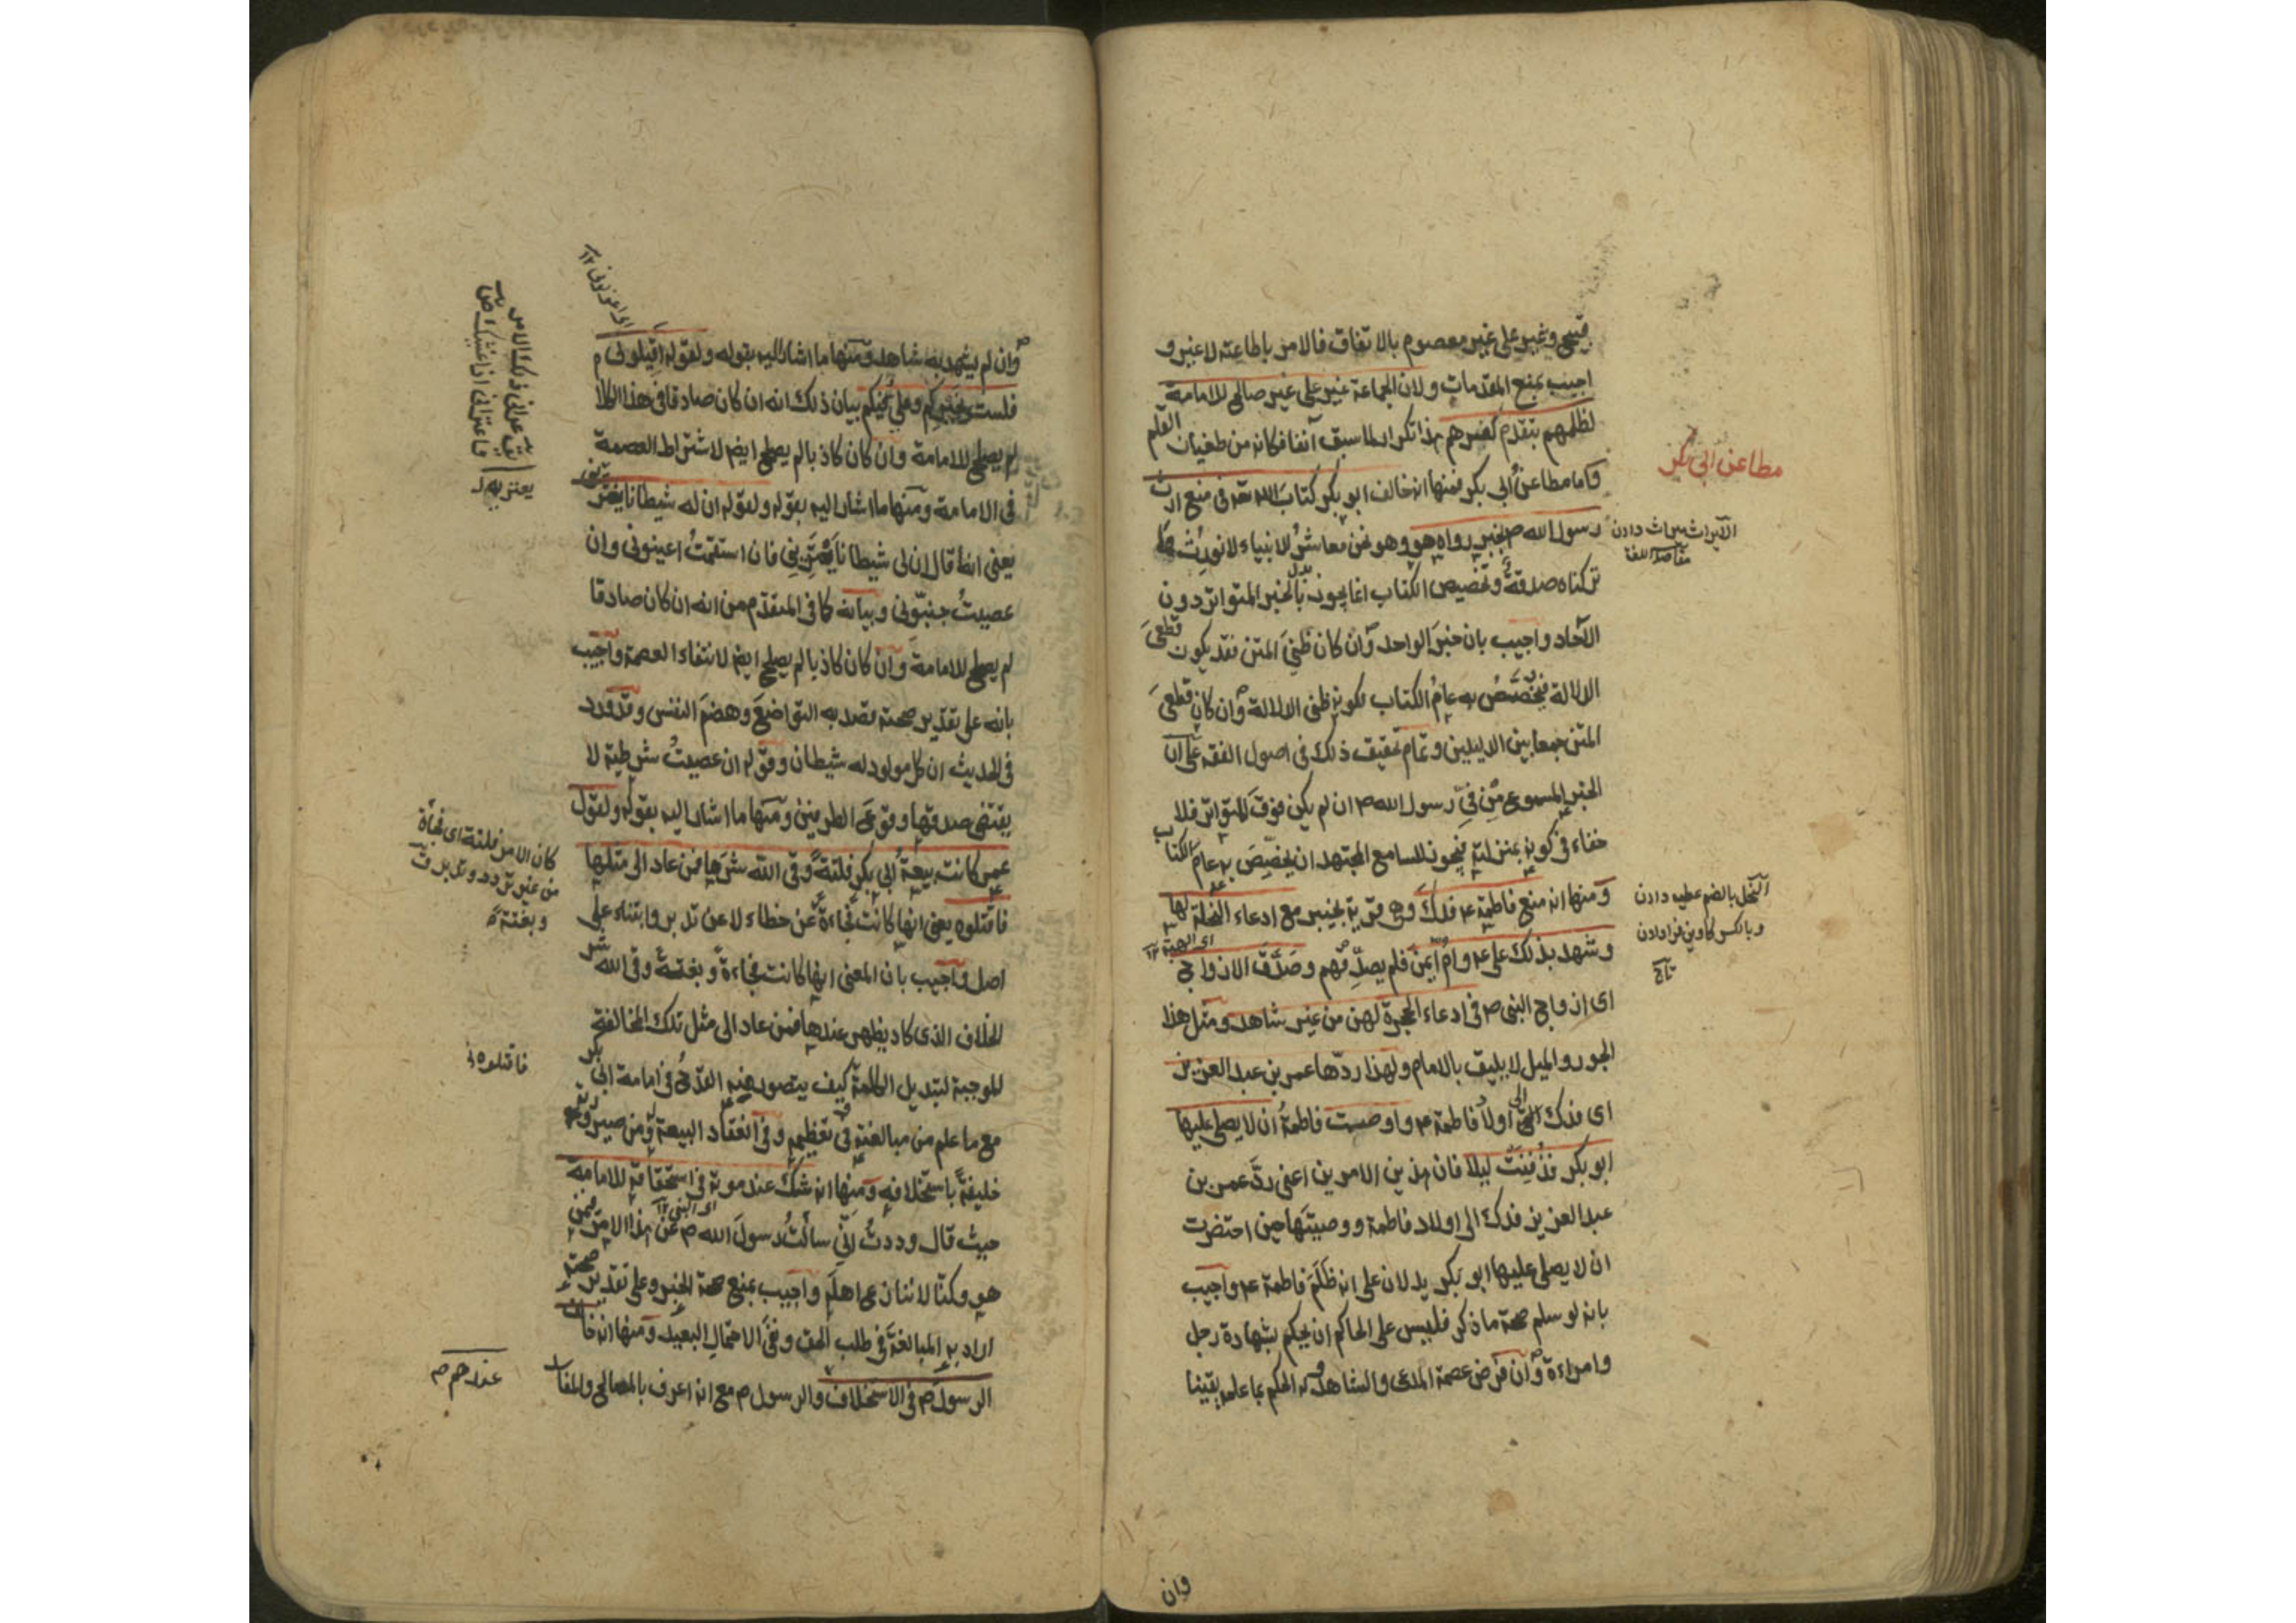 قبيح وغير علي غير معصوم بالاتفاق فالامر باطاعته لا غير و
اجيب بمنع المقدمات ولان الجماعة غير علي غير صالح للامامة
لظلمهم بتقدم كفرهم هذا تكرار لما سبق آنفا فكانه من طغيان القلم
واما مطاعن ابي بكر فمنها انه خالف ابو بكر كتاب الله تعه في منع ارث
مطاعن ابي بكر
رسول الله ص بخبر رواه هو وهو نحن معاشر الانبياء لا نورث ما
الايراث ميراث دادن
تركناه صدقة وتخصيص الكتاب انما يجوز بالخبر المتواتر دون
الآحاد واجيب بان خبر الواحد وان كان ظني المتن فقد يكون قطعي
الدلالة فيخصص به عام الكتاب لكونه ظني الدلالة وان كان قطعي
المتن جمعا بين الدليلين وتمام تحقيق ذلك في اصول الفقه على ان
الخبر المسموع من في رسول الله ص ان لم يكن فوق المتواتر فلا
خفاء في كونه بمنزلته فيجوز للسامع المجتهد ان يخصص به عام الكتاب
ومنها انه منع فاطمة ع فدك وهي قرية بخيبر مع ادعاء النحلة لها
النحل بالضم عطيه دادن
اى الهبة ١٢
وشهد بذلك علي ع وام ايمن فلم يصدقهم وصدق الازواج
وبالكسر كاوين فرا دادن
تاج
اى ازواج النبي ص في ادعاء الحجرة لهن من غير شاهد ومثل هذا
الجور والميل لا يليق بالامام ولهذا ردها عمر بن عبد العزيز
اى فدك الى اولاد فاطمة ع واوصت فاطمة ان لا يصلي عليها
ابو بكر فدفنت ليلا فان هذين الامرين اعني رد عمر بن
عبد العزيز فدك الى اولاد فاطمة ووصيتها حين احتضرت
ان لا يصلي عليها ابو بكر يدلان على انه ظلم فاطمة ع واجيب
بانه لو سلم صحة ما ذكر فليس على الحاكم ان يحكم بشهادة رجل
وامراءة وان فرض عصمة المدعي والشاهد وله الحكم بما علمه يقينا
وان
وان لم يشهد به شاهد ومنها ما اشار اليه بقوله ولقوله اقيلوني
فلست بخيركم وعلي فيكم بيان ذلك انه ان كان صادقا في هذا الكلام
لم يصلح للامامة وان كان كاذبا لم يصلح ايضا لاشتراط العصمة
في الامامة ومنها ما اشار اليه بقوله ولقوله ان له شيطانا يعتريه
يعني انه قال ان لي شيطانا يعتريني فان استقمت اعينوني وان
عصيت جنبوني وبيانه كما في المتقدم من انه ان كان صادقا
لم يصلح للامامة وان كان كاذبا لم يصلح ايضا لانتفاء العصمة واجيب
بانه على تقدير صحته قصد به التواضع وهضم النفس وقد ورد
في الحديث ان كل مولود له شيطان وقوله ان عصيت شرطية لا
يقتضي صدقها وقوع الطرفين ومنها ما اشار اليه بقوله ولقول
عمر كانت بيعة ابي بكر فلتة وقى الله شرها فمن عاد الى مثلها
كان الامر فلتة اى فجأة
من غير تردد وتدبر
وبغتة
فاقتلوه يعني انها كانت فجاءة عن خطاء لا عن تدبر وابتناء على
اصل واجيب بان المعنى انها كانت فجاءة وبغتة وقى الله شر
الخلاف الذى كاد يظهر عندها فمن عاد الى مثل تلك المخالفة
فاقتلوه
الموجبة لتبديل الكلمة كيف يتصور منه القدح في امامة ابي بكر
مع ما علم من مبالغته في تعظيمه وفي انعقاد البيعة ومن صيرورته
خليفة باستخلافه ومنها انه شك عند موته في استحقاقه للامامة
اى النبي ١٢
حيث قال وددت اني سألت رسول الله ص عن هذا الامر فيمن
هو وكنا لا ننازع اهله واجيب بمنع صحة الخبر وعلى تقدير صحته
اراد به المبالغة في طلب الحق ونفي الاحتمال البعيد ومنها انه خالف
الرسول ص في الاستخلاف والرسول ص مع انه اعرف بالمصالح والمفاسد